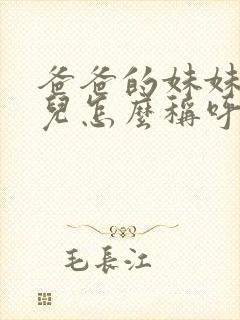 爸爸的妹妹
兒怎麼稱呼
毛長江